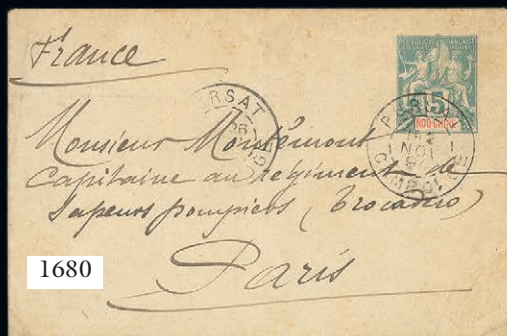 France
RÉPUBLIQUE FRANÇAISE
5
INDO-CHINE
Monsieur Montémont
Capitaine au régiment de
Sapeurs pompiers (Trocadéro)
Paris
1680